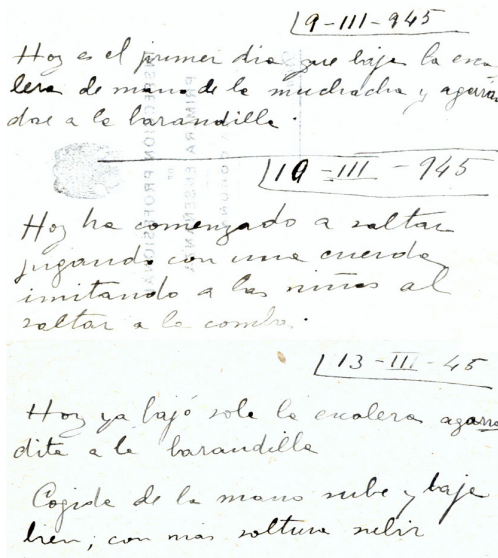 9-III-945
Hoy es el primer dia que baja la esca
lera de mano de la muchacha y agarrán
dose a la barandilla.
10-III-945
Hoy ha comenzado a saltar
jugando con una cuerda,
imitando a las niñas al
saltar a la comba.
13-III-45
Hoy ya bajó sola la escalera agarra
dita a la barandilla
Cogida de la mano sube y baja
bien; con más soltura subir